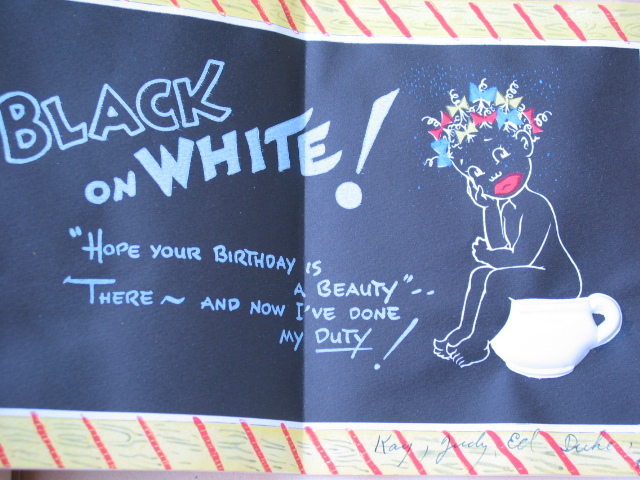 BLACK
ON WHITE!
"HOPE YOUR BIRTHDAY IS
A BEAUTY"--
THERE ~ AND NOW I'VE DONE
MY DUTY!
Kay, Judy, Ed Duke